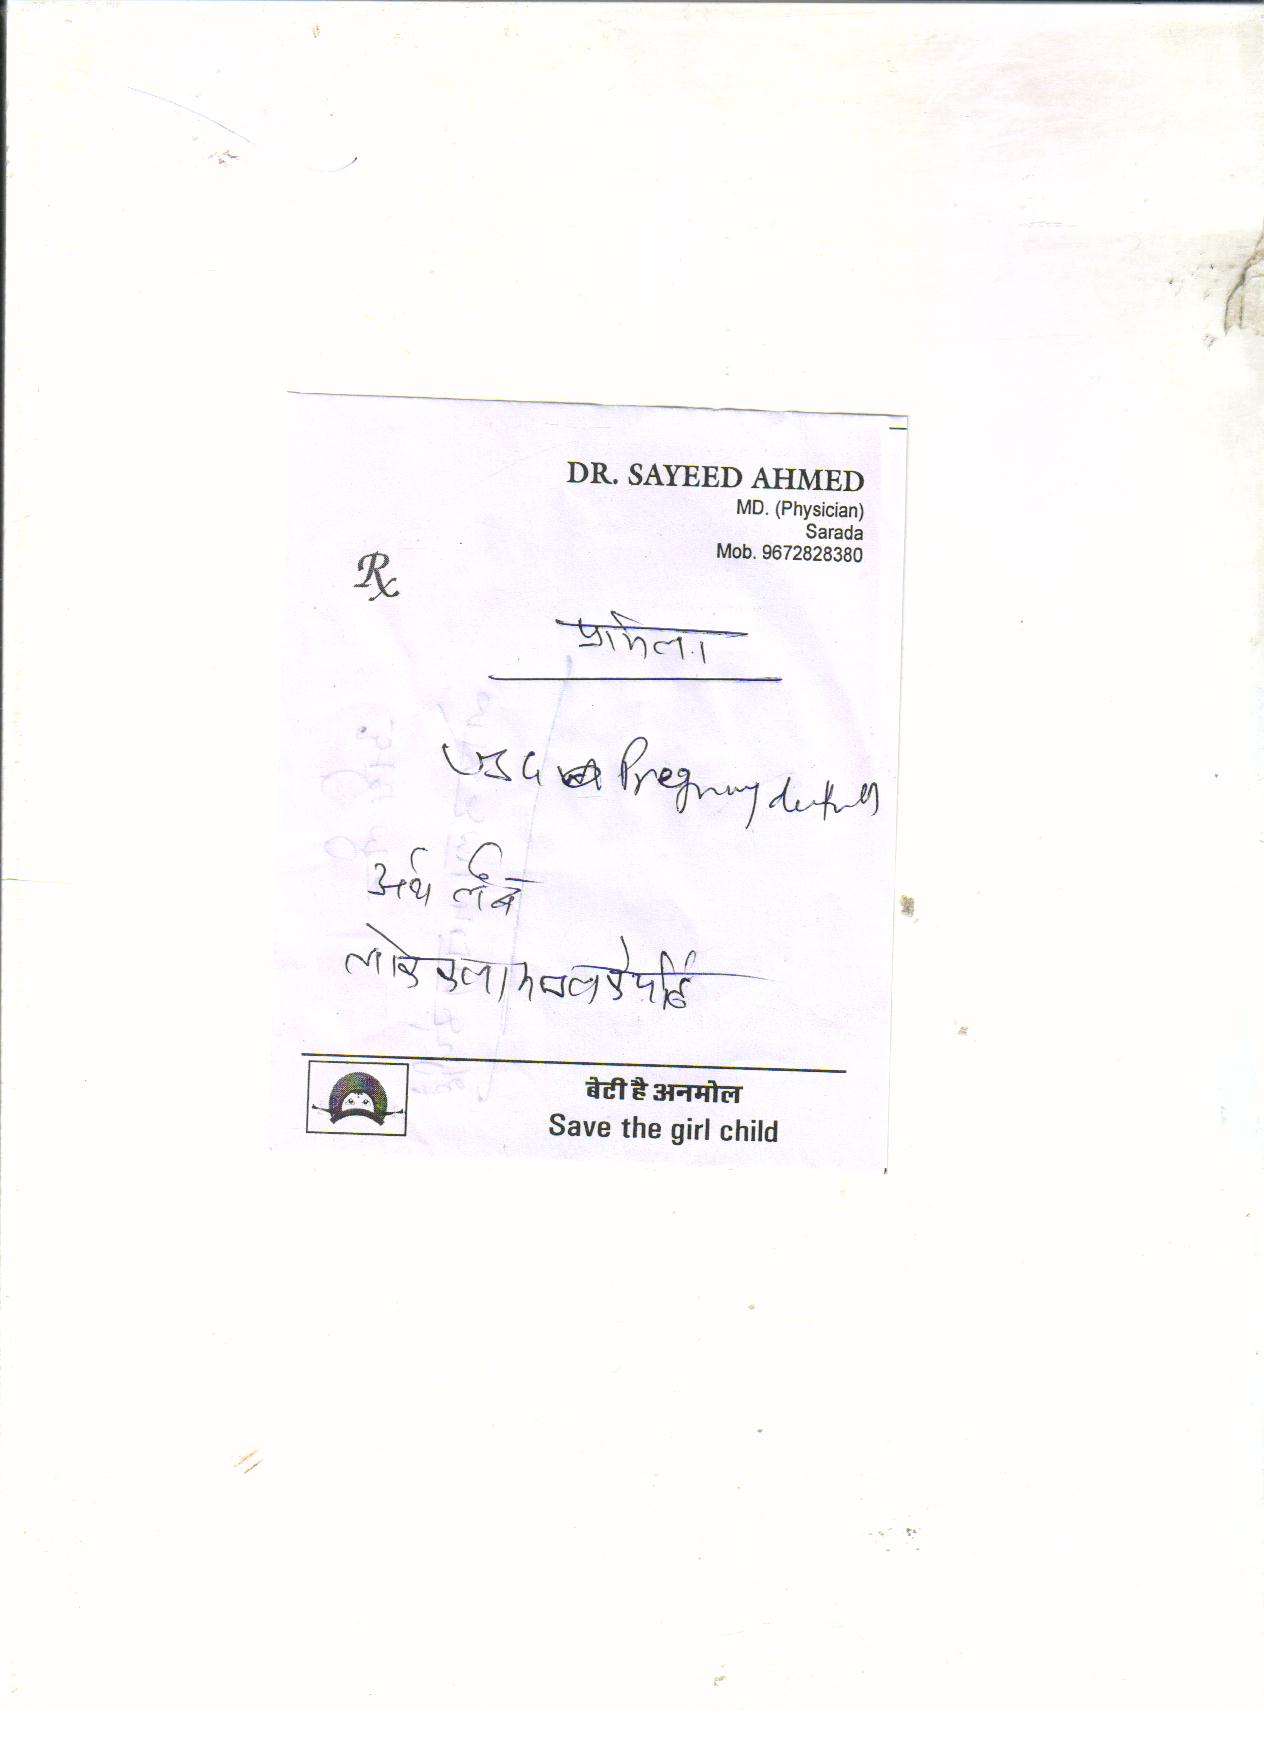 DR. SAYEED AHMED
MD. (Physician)
Sarada
Mob. 9672828380
Rx
प्रमिला
USG Pregnancy
अर्थ लैब
बेटी है अनमोल
Save the girl child